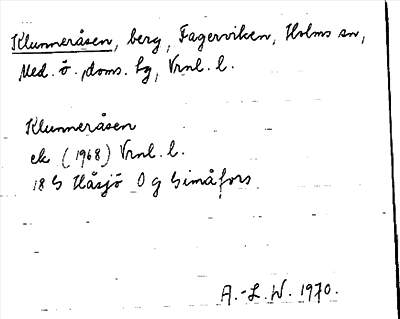 Klunneråsen, berg, Fagerviken, Holms sn,
Med. ö. doms. hg, Vrnl. l.
Klunneråsen
ek (1968) Vrnl. l.
18 G Håsjö 0 g Gimåfors
A.-L. W. 1970.